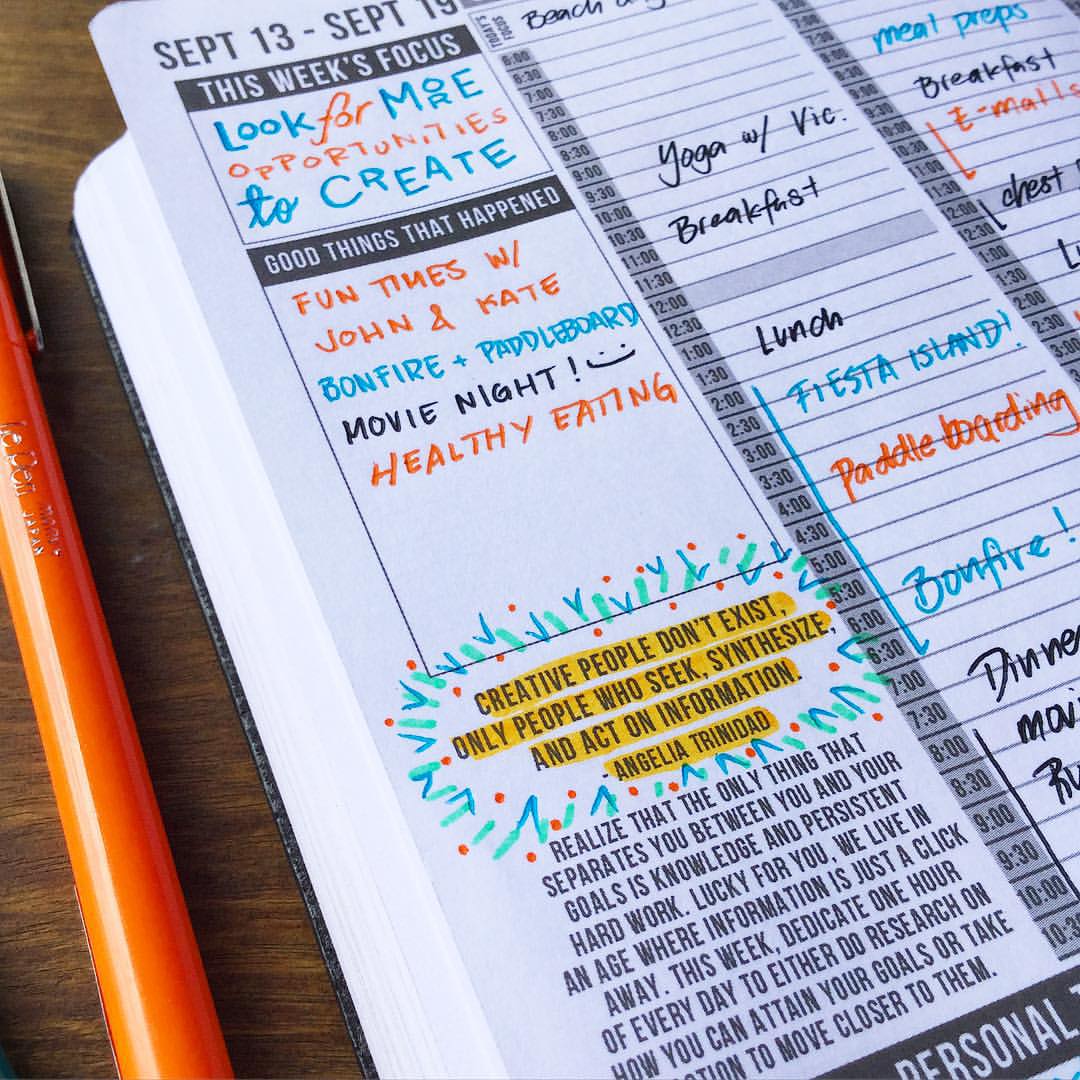 SEPT 13 - SEPT 19
THIS WEEK'S FOCUS
Look for MORE
OPPORTUNITIES
to CREATE
GOOD THINGS THAT HAPPENED
FUN TIMES W/
JOHN & KATE
BONFIRE + PADDLEBOARD
MOVIE NIGHT!
HEALTHY EATING
CREATIVE PEOPLE DON'T EXIST,
ONLY PEOPLE WHO SEEK, SYNTHESIZE,
AND ACT ON INFORMATION.
- ANGELIA TRINIDAD
REALIZE THAT THE ONLY THING THAT
SEPARATES YOU BETWEEN YOU AND YOUR
GOALS IS KNOWLEDGE AND PERSISTENT
HARD WORK. LUCKY FOR YOU, WE LIVE IN
AN AGE WHERE INFORMATION IS JUST A CLICK
AWAY. THIS WEEK, DEDICATE ONE HOUR
OF EVERY DAY TO EITHER DO RESEARCH ON
HOW YOU CAN ATTAIN YOUR GOALS OR TAKE
TO MOVE CLOSER TO THEM.
TODAY'S
FOCUS
Beach
6:00
6:30
7:00
7:30
8:00
8:30
9:00
9:30
10:00
10:30
11:00
11:30
12:00
12:30
1:00
1:30
2:00
2:30
3:00
3:30
4:00
4:30
5:00
5:30
6:00
6:30
7:00
7:30
8:00
8:30
9:00
9:30
10:00
Yoga w/ Vic.
Breakfast
Lunch
FIESTA ISLAND!
Paddleboarding
Bonfire!
8:00
8:30
9:00
9:30
10:00
10:30
11:00
11:30
12:00
12:30
1:00
1:30
2:00
2:30
3:00
meal preps
Breakfast
E-mails
chest
PERSONAL
le Pen
JAPAN